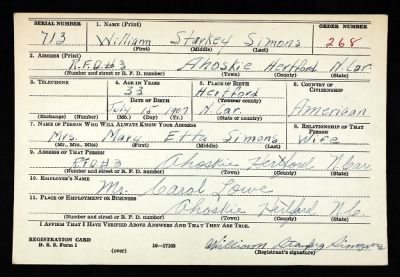 SERIAL NUMBER 1. NAME (Print) ORDER NUMBER
713 William Starkey Simons 268
(First) (Middle) (Last)
2. ADDRESS (Print)
R.F.D.#3 Ahoskie Hertford N.Car.
(Number and street or R. F. D. number) (Town) (County) (State)
3. TELEPHONE 4. AGE IN YEARS 5. PLACE OF BIRTH 6. COUNTRY OF CITIZENSHIP
33 Hertford
DATE OF BIRTH (Town or county)
July 15 1907 N.Car. American
(Exchange) (Number) (Mo.) (Day) (Yr.) (State or country)
7. NAME OF PERSON WHO WILL ALWAYS KNOW YOUR ADDRESS 8. RELATIONSHIP OF THAT PERSON
Mrs. Mary Etta Simons Wife
(Mr., Mrs., Miss) (First) (Middle) (Last)
9. ADDRESS OF THAT PERSON
R.F.D#3 Ahoskie Hertford N.Car.
(Number and street or R. F. D. number) (Town) (County) (State)
10. EMPLOYER'S NAME
Mr. Carol Lowe
11. PLACE OF EMPLOYMENT OR BUSINESS
Ahoskie Hertford N.C.
(Number and street or R. F. D. number) (Town) (County) (State)
I AFFIRM THAT I HAVE VERIFIED ABOVE ANSWERS AND THAT THEY ARE TRUE.
REGISTRATION CARD
D. S. S. Form 1 (over) 16—17105 William Simons
(Registrant's signature)